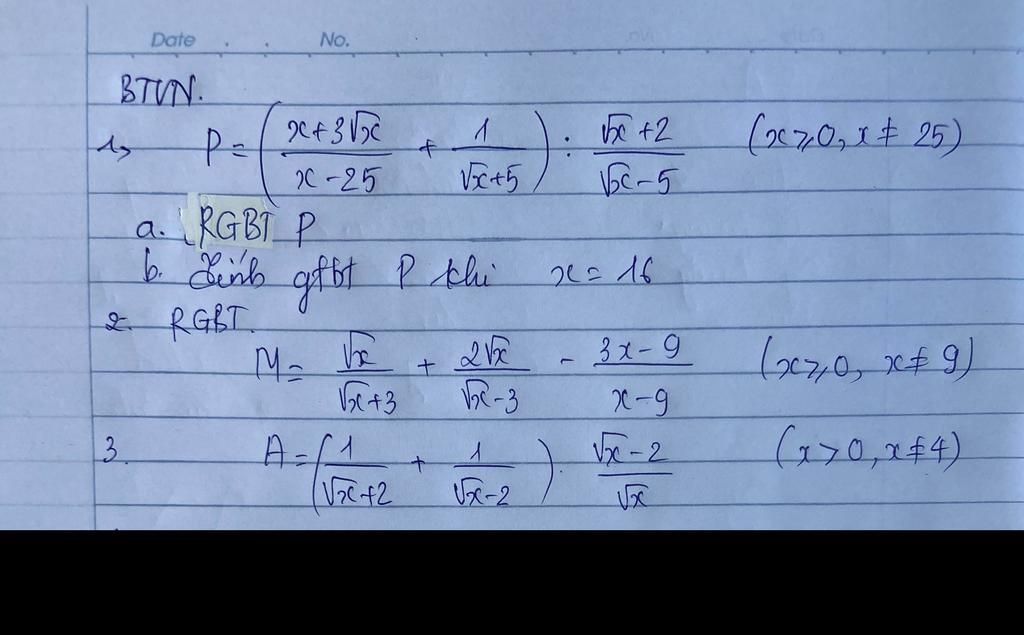 Date . . No.
BTVN.
1, P = ( (x+3√x)/(x-25) + 1/(√x+5) ) : (√x+2)/(√x-5) (x≥0, x≠25)
a. RGBT P
b. Tính gtbt P khi x = 16
2. RGBT.
M = √x/(√x+3) + 2√x/(√x-3) - (3x-9)/(x-9) (x≥0, x≠9)
3. A = ( 1/(√x+2) + 1/(√x-2) ) . (√x-2)/√x (x>0, x≠4)